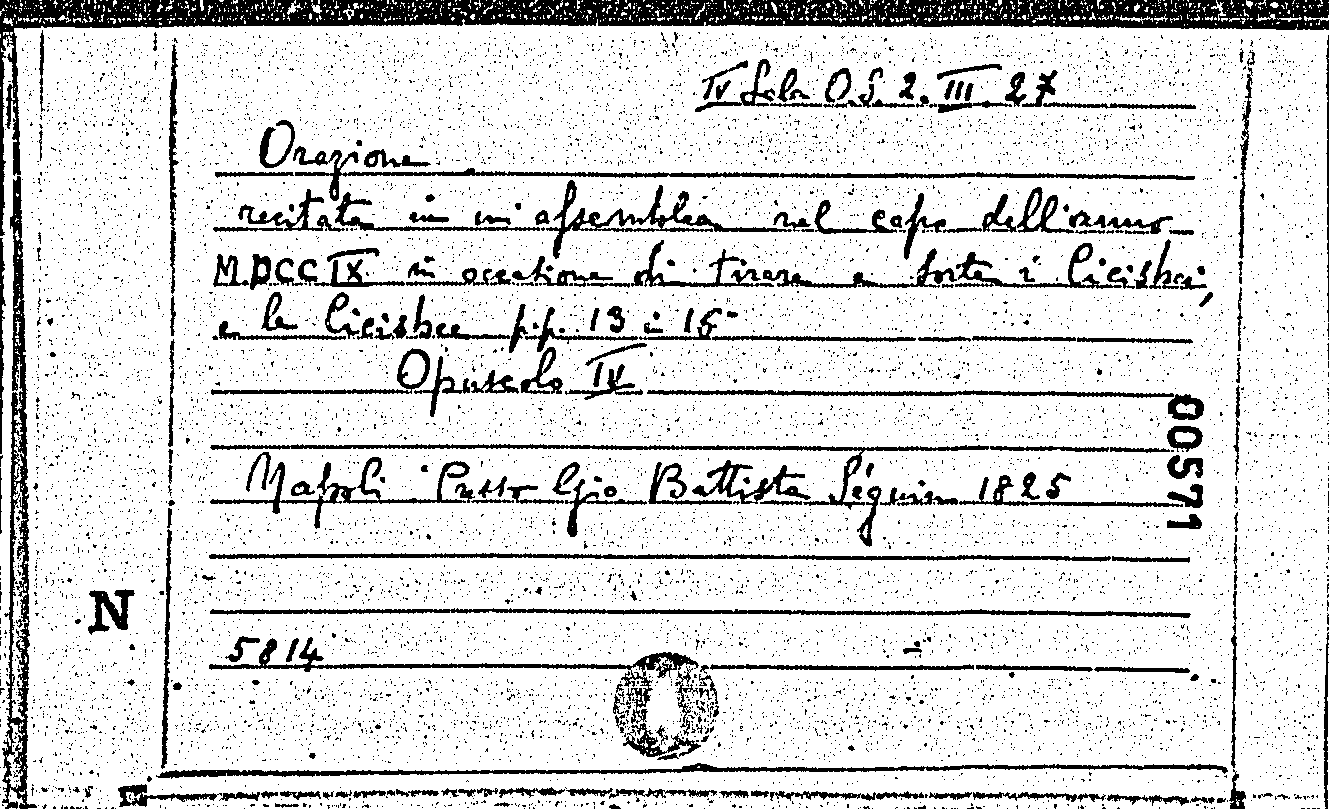 IV Sala O.S. 2. III. 27
Orazione
recitata in un'assemblea nel capo dell'anno
M.DCCIX in occasione di tirare a sorte i Cicisbei,
e le Cicisbee p.p. 13 a 15
Opuscolo IV
Napoli Presso Gio. Battista Séguin 1825
00571
N
5814